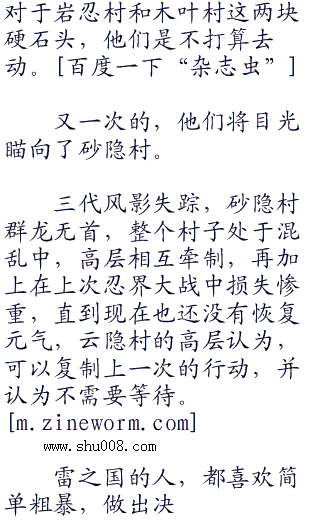 对于岩忍村和木叶村这两块
硬石头，他们是不打算去
动。[百度一下“杂志虫”]
又一次的，他们将目光
瞄向了砂隐村。
三代风影失踪，砂隐村
群龙无首，整个村子处于混
乱中，高层相互牵制，再加
上在上次忍界大战中损失惨
重，直到现在也还没有恢复
元气，云隐村的高层认为，
可以复制上一次的行动，并
认为不需要等待。
[m.zineworm.com]
www.shu008.com
雷之国的人，都喜欢简
单粗暴，做出决